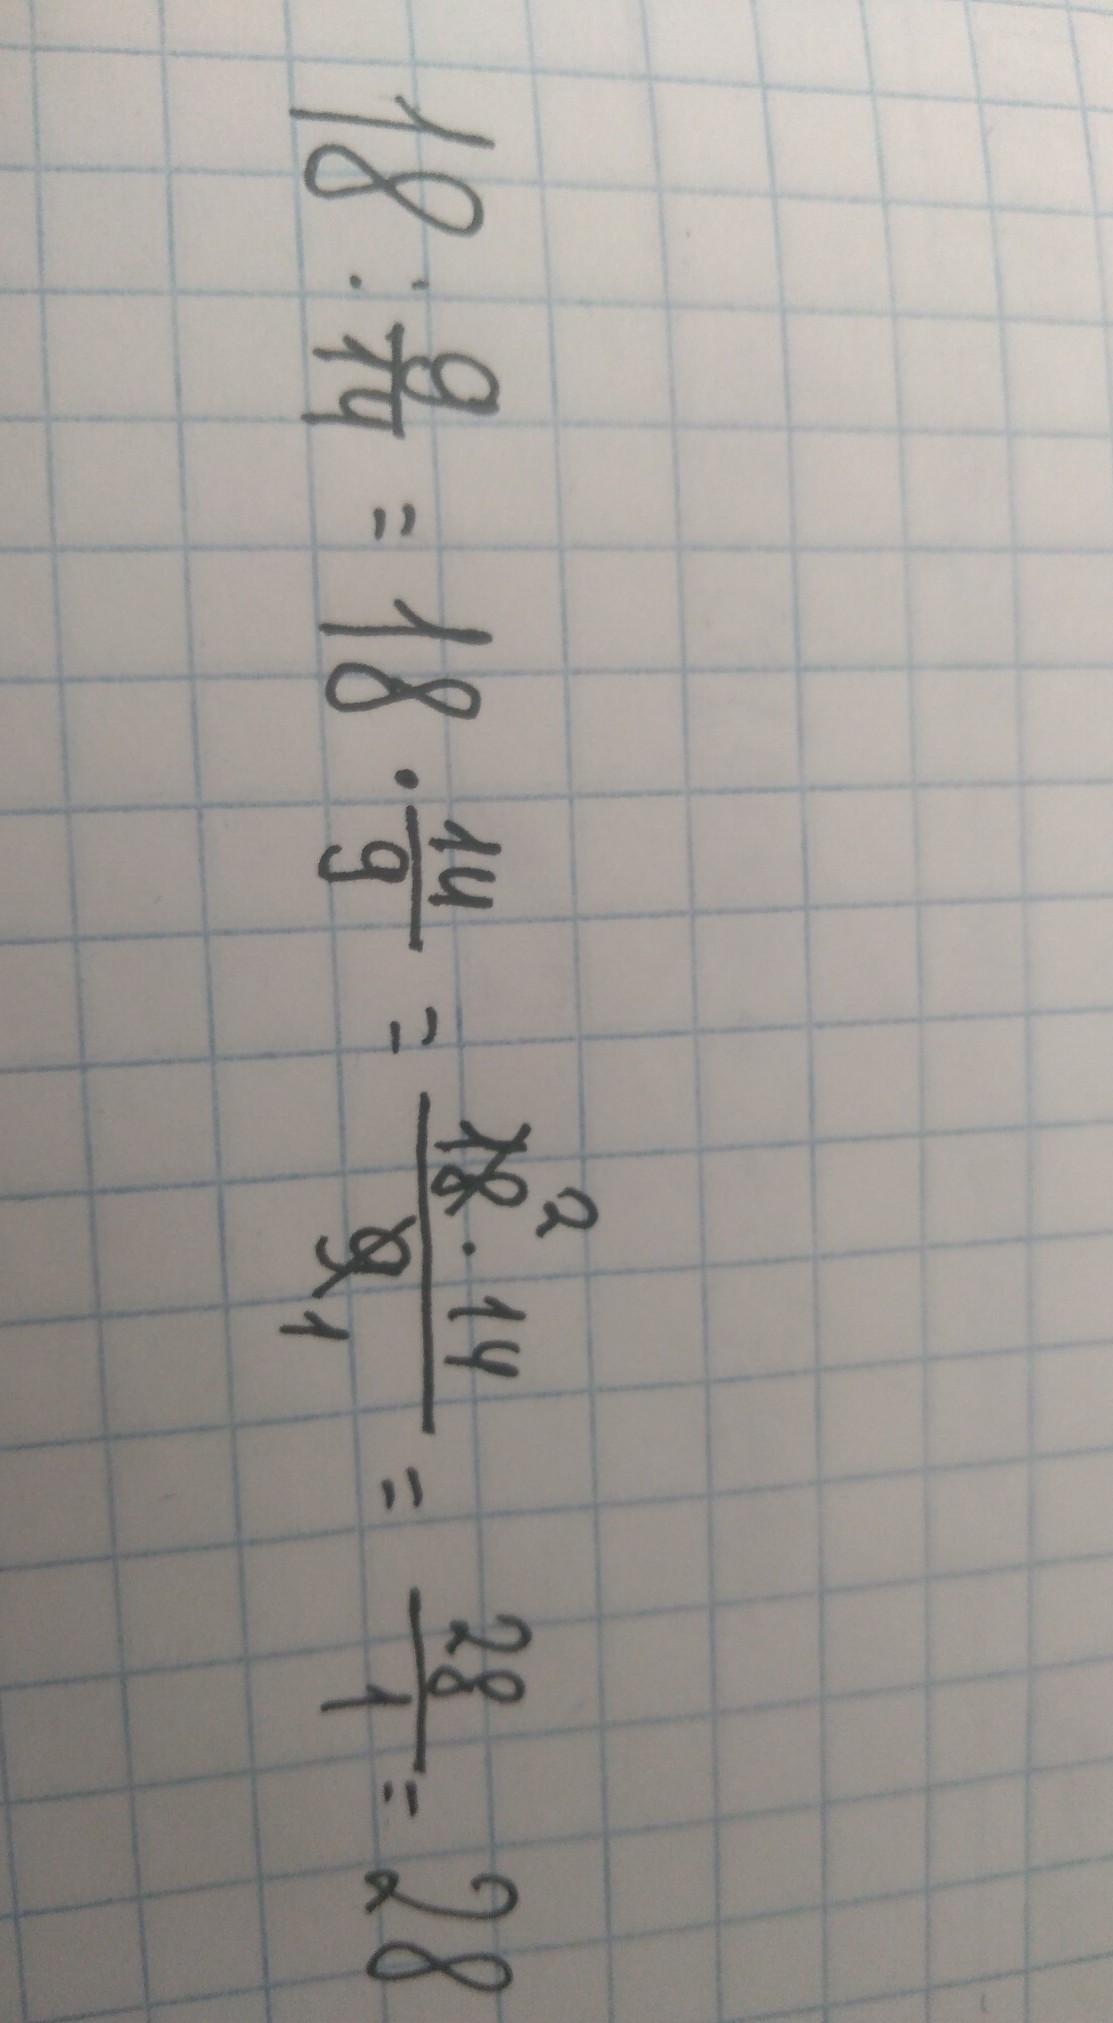 18 : 9/14 = 18 · 14/9 = 18 2 · 14 / 9 1 = 28/1 = 28